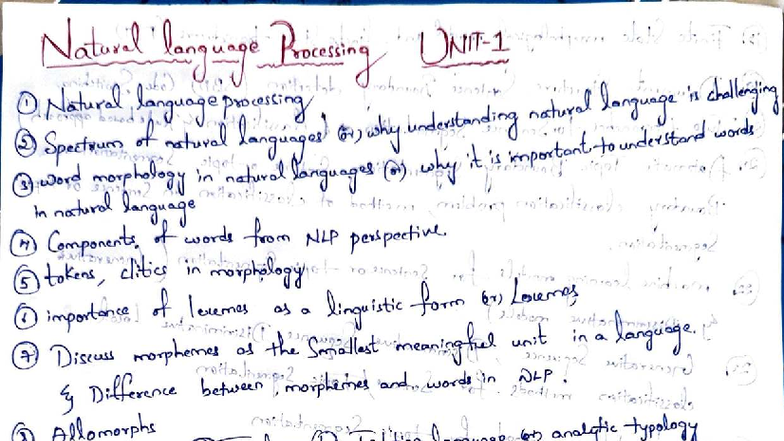 Natural language Processing UNIT-1
① Natural language processing
② Spectrum of natural languages (or) why understanding natural language is challenging
③ word morphology in natural languages (or) why it is important to understand words
in natural language
④ Components of words from NLP perspective.
⑤ tokens, clitics in morphology
⑥ importance of lexemes as a linguistic form (or) Lexemes
⑦ Discuss morphemes as the Smallest meaningful unit in a language.
& Difference between morphemes and words in NLP.
⑧ Allomorphs
(or) analytic typology